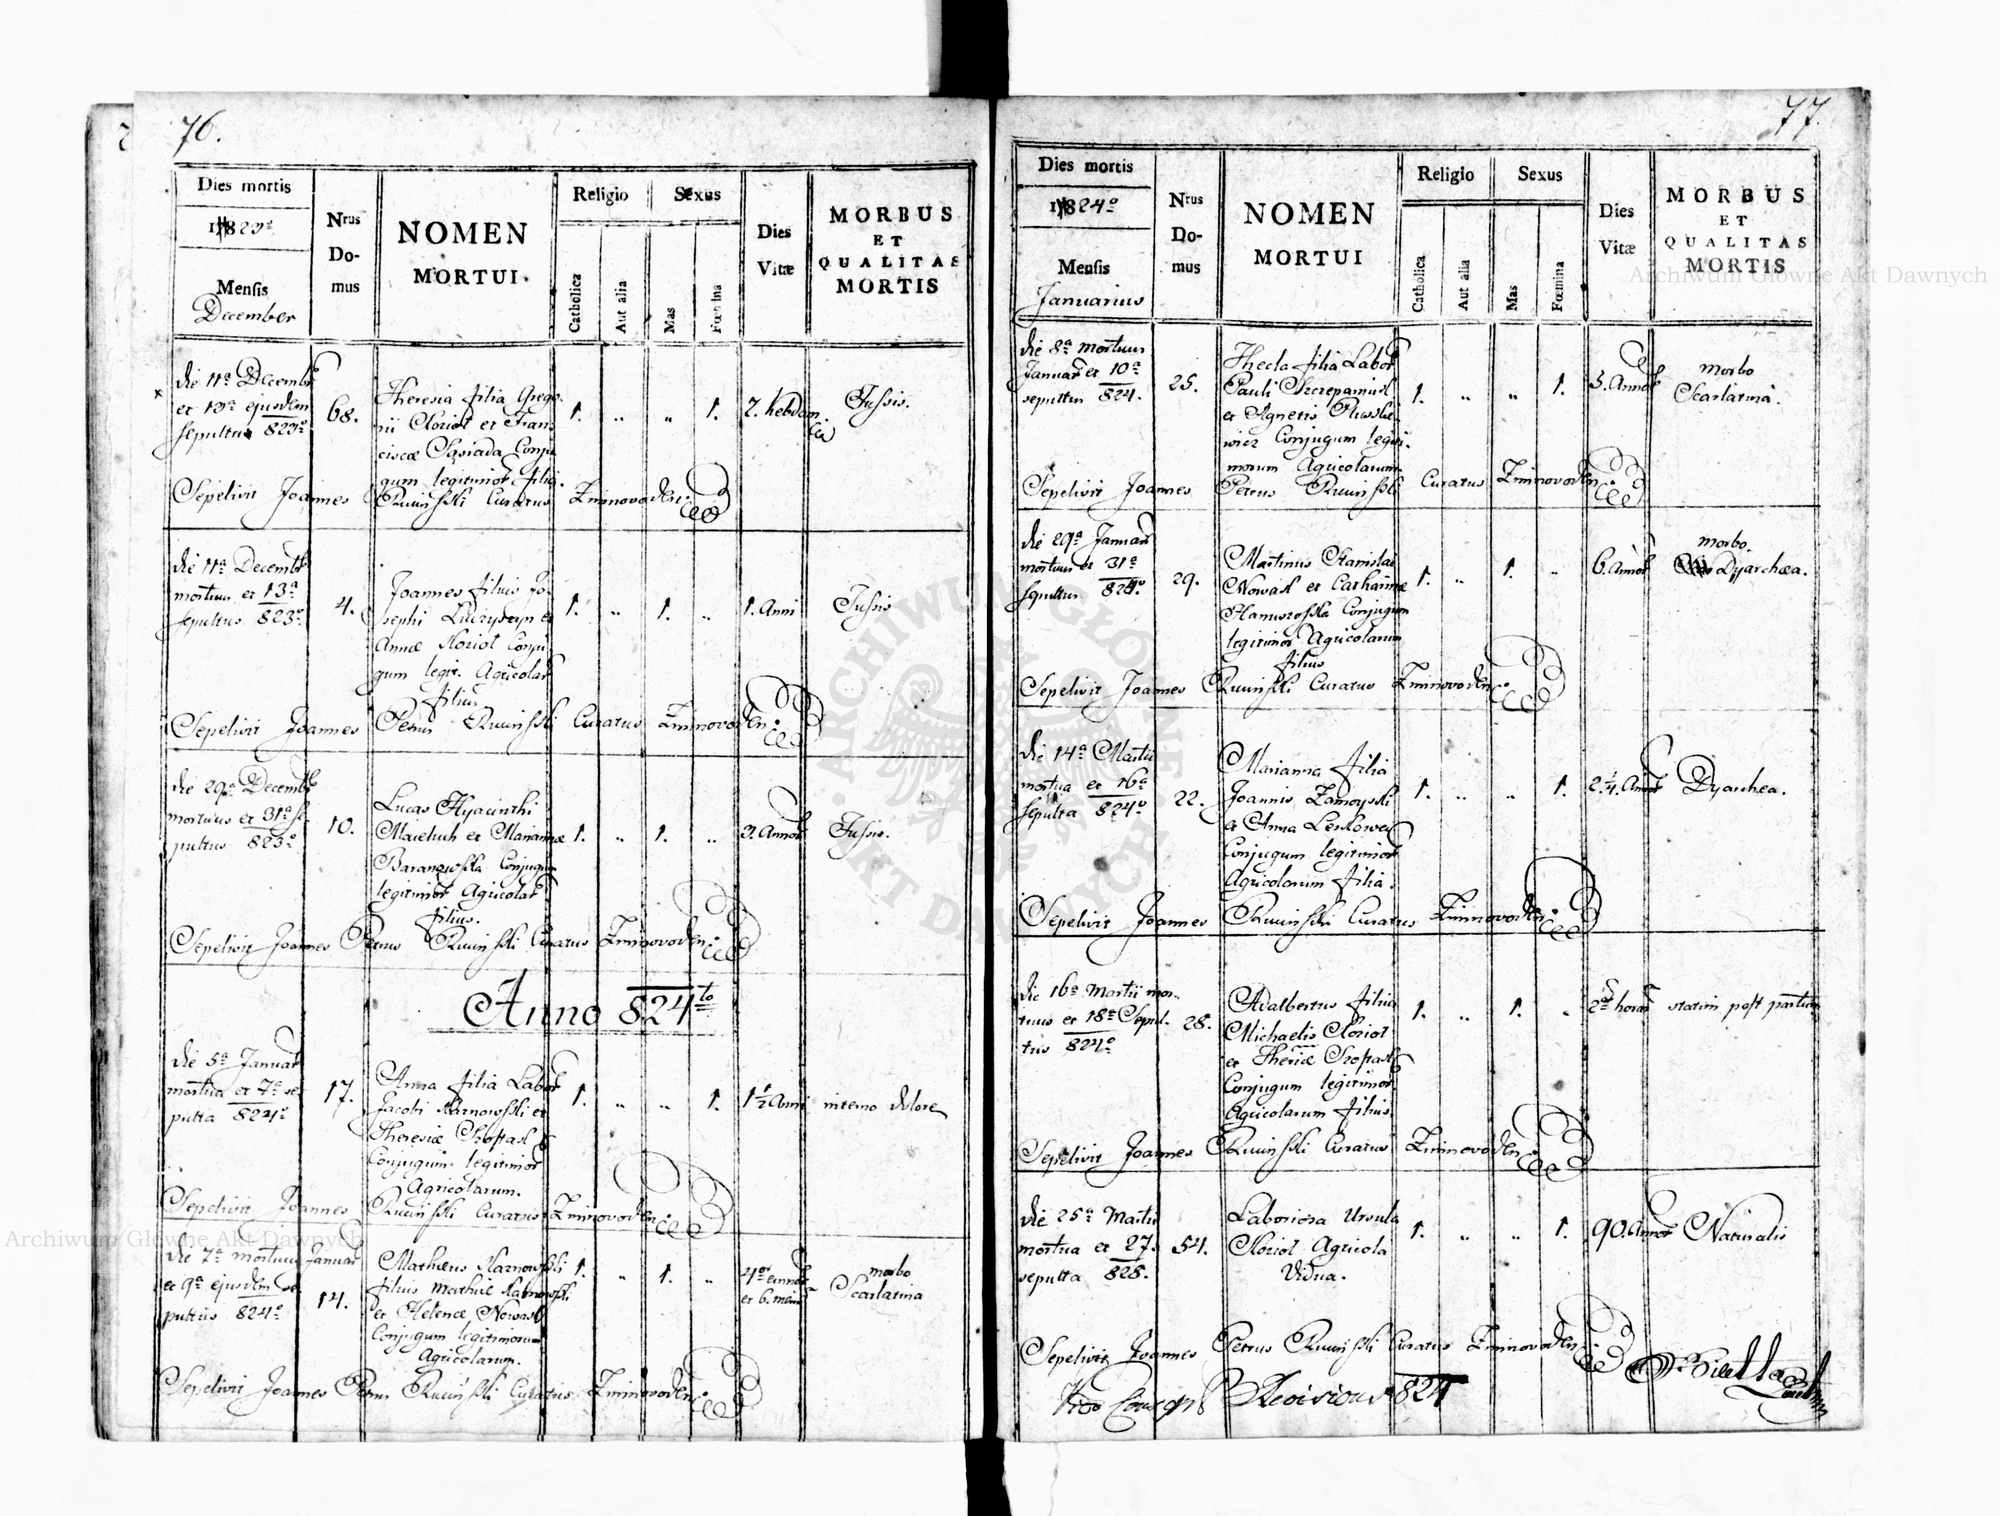 76.
Dies mortis
1823º
Mensis
December
Nrus
Do-
mus
NOMEN
MORTUI.
Religio
Sexus
Catholica
Aut alia
Mas
Fœmina
Dies
Vitæ
MORBUS
ET
QUALITAS
MORTIS
die 11ª Decembr
et 13ª ejusdem
sepultus 823º
68.
Theresia filia Grego
rii Kloriot et Fran
ciscæ Sąsiada Conju
gum legitimor filia.
1. „ „ 1.
2. hebdom.
Tussis.
Sepelivit Joannes Rucinsski Curatus Zminovoden:
die 11ª Decembr
mortuus et 13ª
sepultus 823º
4.
Joannes filius Jo-
sephi
Annæ Kloriot Conju
gum legit. Agricolar
filius
1. „ 1. „
1. Anni
Tussis
Sepelivit Joannes Petrus Rucinsski Curatus Zminovoden:
die 29ª Decembr
mortuus et 31ª se
pultus 823º
10.
Lucas Hyacinthi
et Mariannæ
Baranowska Conjugum
legitimor Agricolar
filius.
1. „ 1. „
3. Annor
Tussis.
Sepelivit Joannes Petrus Rucinsski Curatus Zminovoden:
Anno 824to
die 5ª Januar
mortua et 7ª se
pulta 824º
17.
Anna filia Labor
Jacobi Karnowski et
Theresiæ Szopask
Conjugum legitimor
Agricolarum.
1. „ „ 1.
1½ Anni
interno dolore
Sepelivit Joannes Rucinsski Curatus Zminovoden:
die 7ª mortuus Januar
et 9ª ejusdem se
pultus 824º
14.
Matheus Karnowski
filius Mathiæ Karnowski
et Helenæ Nowask
Conjugum legitimorum
Agricolarum.
1. „ 1. „
4or annor
et 6. men
morbo
Scarlatina
Sepelivit Joannes Petrus Rucinsski Curatus Zminovoden:
77.
Dies mortis
1824º
Mensis
Januarius
Nrus
Do-
mus
NOMEN
MORTUI
Religio
Sexus
Catholica
Aut alia
Mas
Fœmina
Dies
Vitæ
MORBUS
ET
QUALITAS
MORTIS
die 8ª mortuus
Januar et 10ª
sepultus 824.
25.
Thecla filia Labor
Pauli Szczepaniuk
et Agnetis Russkie
wicz Conjugum legiti
morum Agricolarum
1. „ „ 1.
3. Annor
morbo
Scarlatina.
Sepelivit Joannes Petrus Rucinsski Curatus Zminovoden:
die 29ª Januar
mortuus et 31ª
sepultus 824º
29.
Martinus Stanislai
Nowask et Catharinæ
Hanuszosska Conjugum
legitimor Agricolarum
filius
1. „ 1. „
6. Annor
morbo.
Dyarchæa.
Sepelivit Joannes Rucinsski Curatus Zminovoden:
die 14ª Martii
mortua et 16ª
sepulta 824º
22.
Marianna filia
Joannis Zamoyski
et Anna
Conjugum legitimor
Agricolarum filia.
1. „ „ 1.
2¼ Annor
Dyarchea.
Sepelivit Joannes Rucinsski Curatus Zminovoden:
die 16ª Martii mor-
tuus et 18ª Sepul-
tus 824º
28.
Adalbertus filius
Michaelis Kloriot
et Theriæ Szopask
Conjugum legitimor
Agricolarum filius
1. „ 1. „
2s horas
statim post partum
Sepelivit Joannes Rucinsski Curatus Zminovoden:
die 25ª Martii
mortua et 27.
sepulta 828.
54.
Laboriosa Ursula
Kloriot Agricola
Vidua.
1. „ „ 1.
90. Annor
Naturalis
Sepelivit Joannes Petrus Rucinsski Curatus Zminovoden:
824
Archiwum Główne Akt Dawnych
Archiwum Główne Akt Dawnych
ARCHIWUM GŁÓWNE AKT DAWNYCH